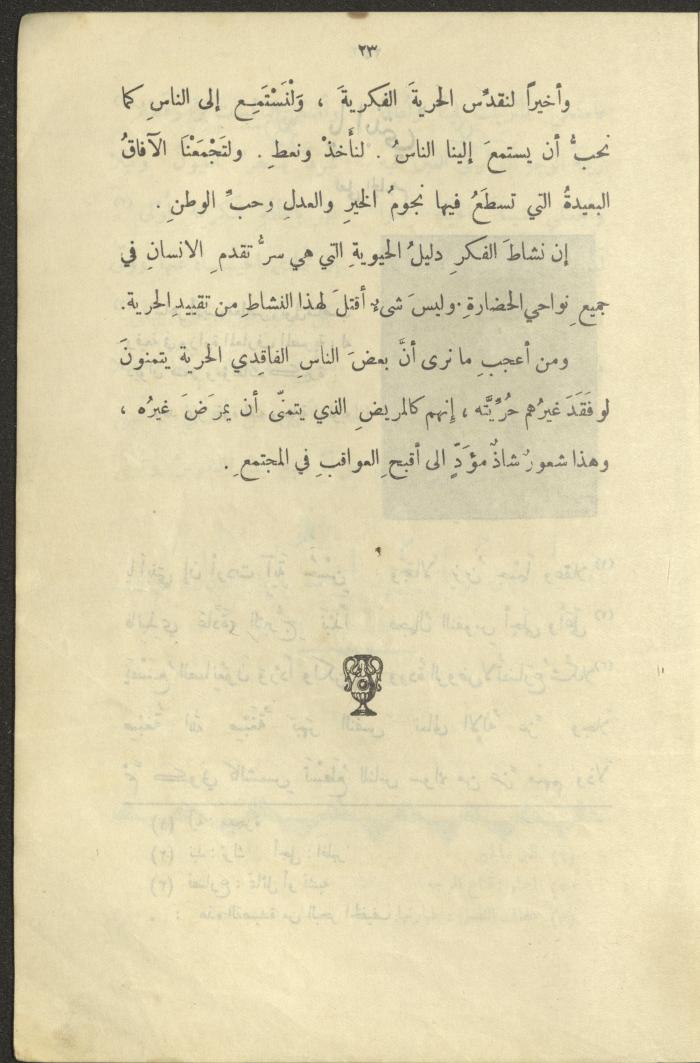 ٢٣
وأخيراً لنقدِّس الحريةَ الفكريةَ ، وَلْنَسْتَمِع إلى الناسِ كما
نحبُّ أن يستمعَ إلينا الناسُ . لنأخذْ ونعطِ . ولتَجْمَعْنَا الآفاقُ
البعيدةُ التي تسطَعُ فيها نجومُ الخيرِ والعدلِ وحبِّ الوطنِ .
إن نشاطَ الفكرِ دليلُ الحيويةِ التي هي سرُّ تقدمِ الانسانِ في
جميعِ نواحي الحضارةِ . وليسَ شىءٌ أقتلَ لهذا النشاطِ من تقييدِ الحرية .
ومن أعجبِ ما نرى أنَّ بعضَ الناسِ الفاقِدي الحريةِ يتمنونَ
لو فَقَدَ غيرُهم حُرِّيَّتَه ، إنهم كالمريضِ الذي يتمنّى أن يمرَضَ غيرُه ،
وهذا شعورٌ شاذٌ مؤدٍّ الى أقبحِ العواقبِ في المجتمعِ .